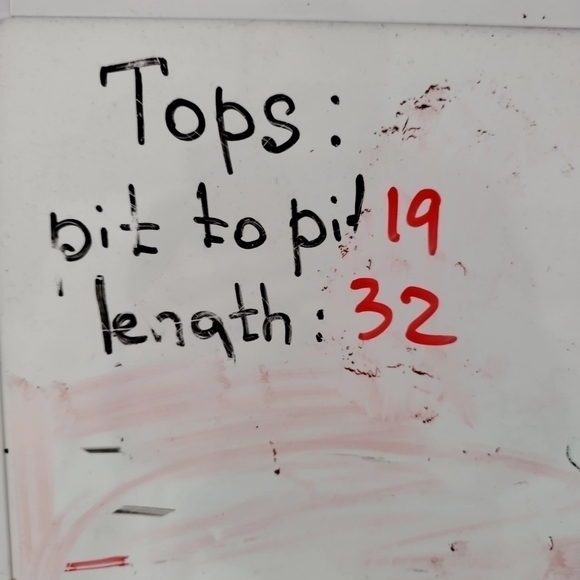 Tops:
pit to pit 19
length: 32